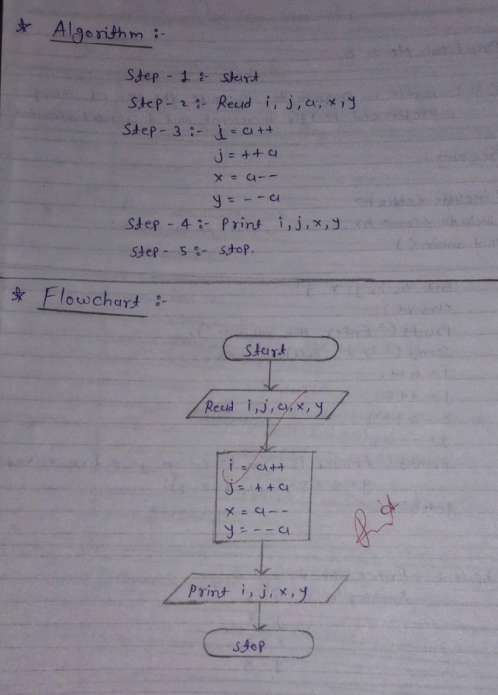 * Algorithm :-
Step - 1 :- start
Step - 2 :- Read i, j, a, x, y
Step - 3 :- i = a++
j = ++a
x = a--
y = --a
Step - 4 :- Print i, j, x, y
Step - 5 :- stop.
* Flowchart :-
Start
Read i, j, a, x, y
i = a++
j = ++a
x = a--
y = --a
Print i, j, x, y
stop